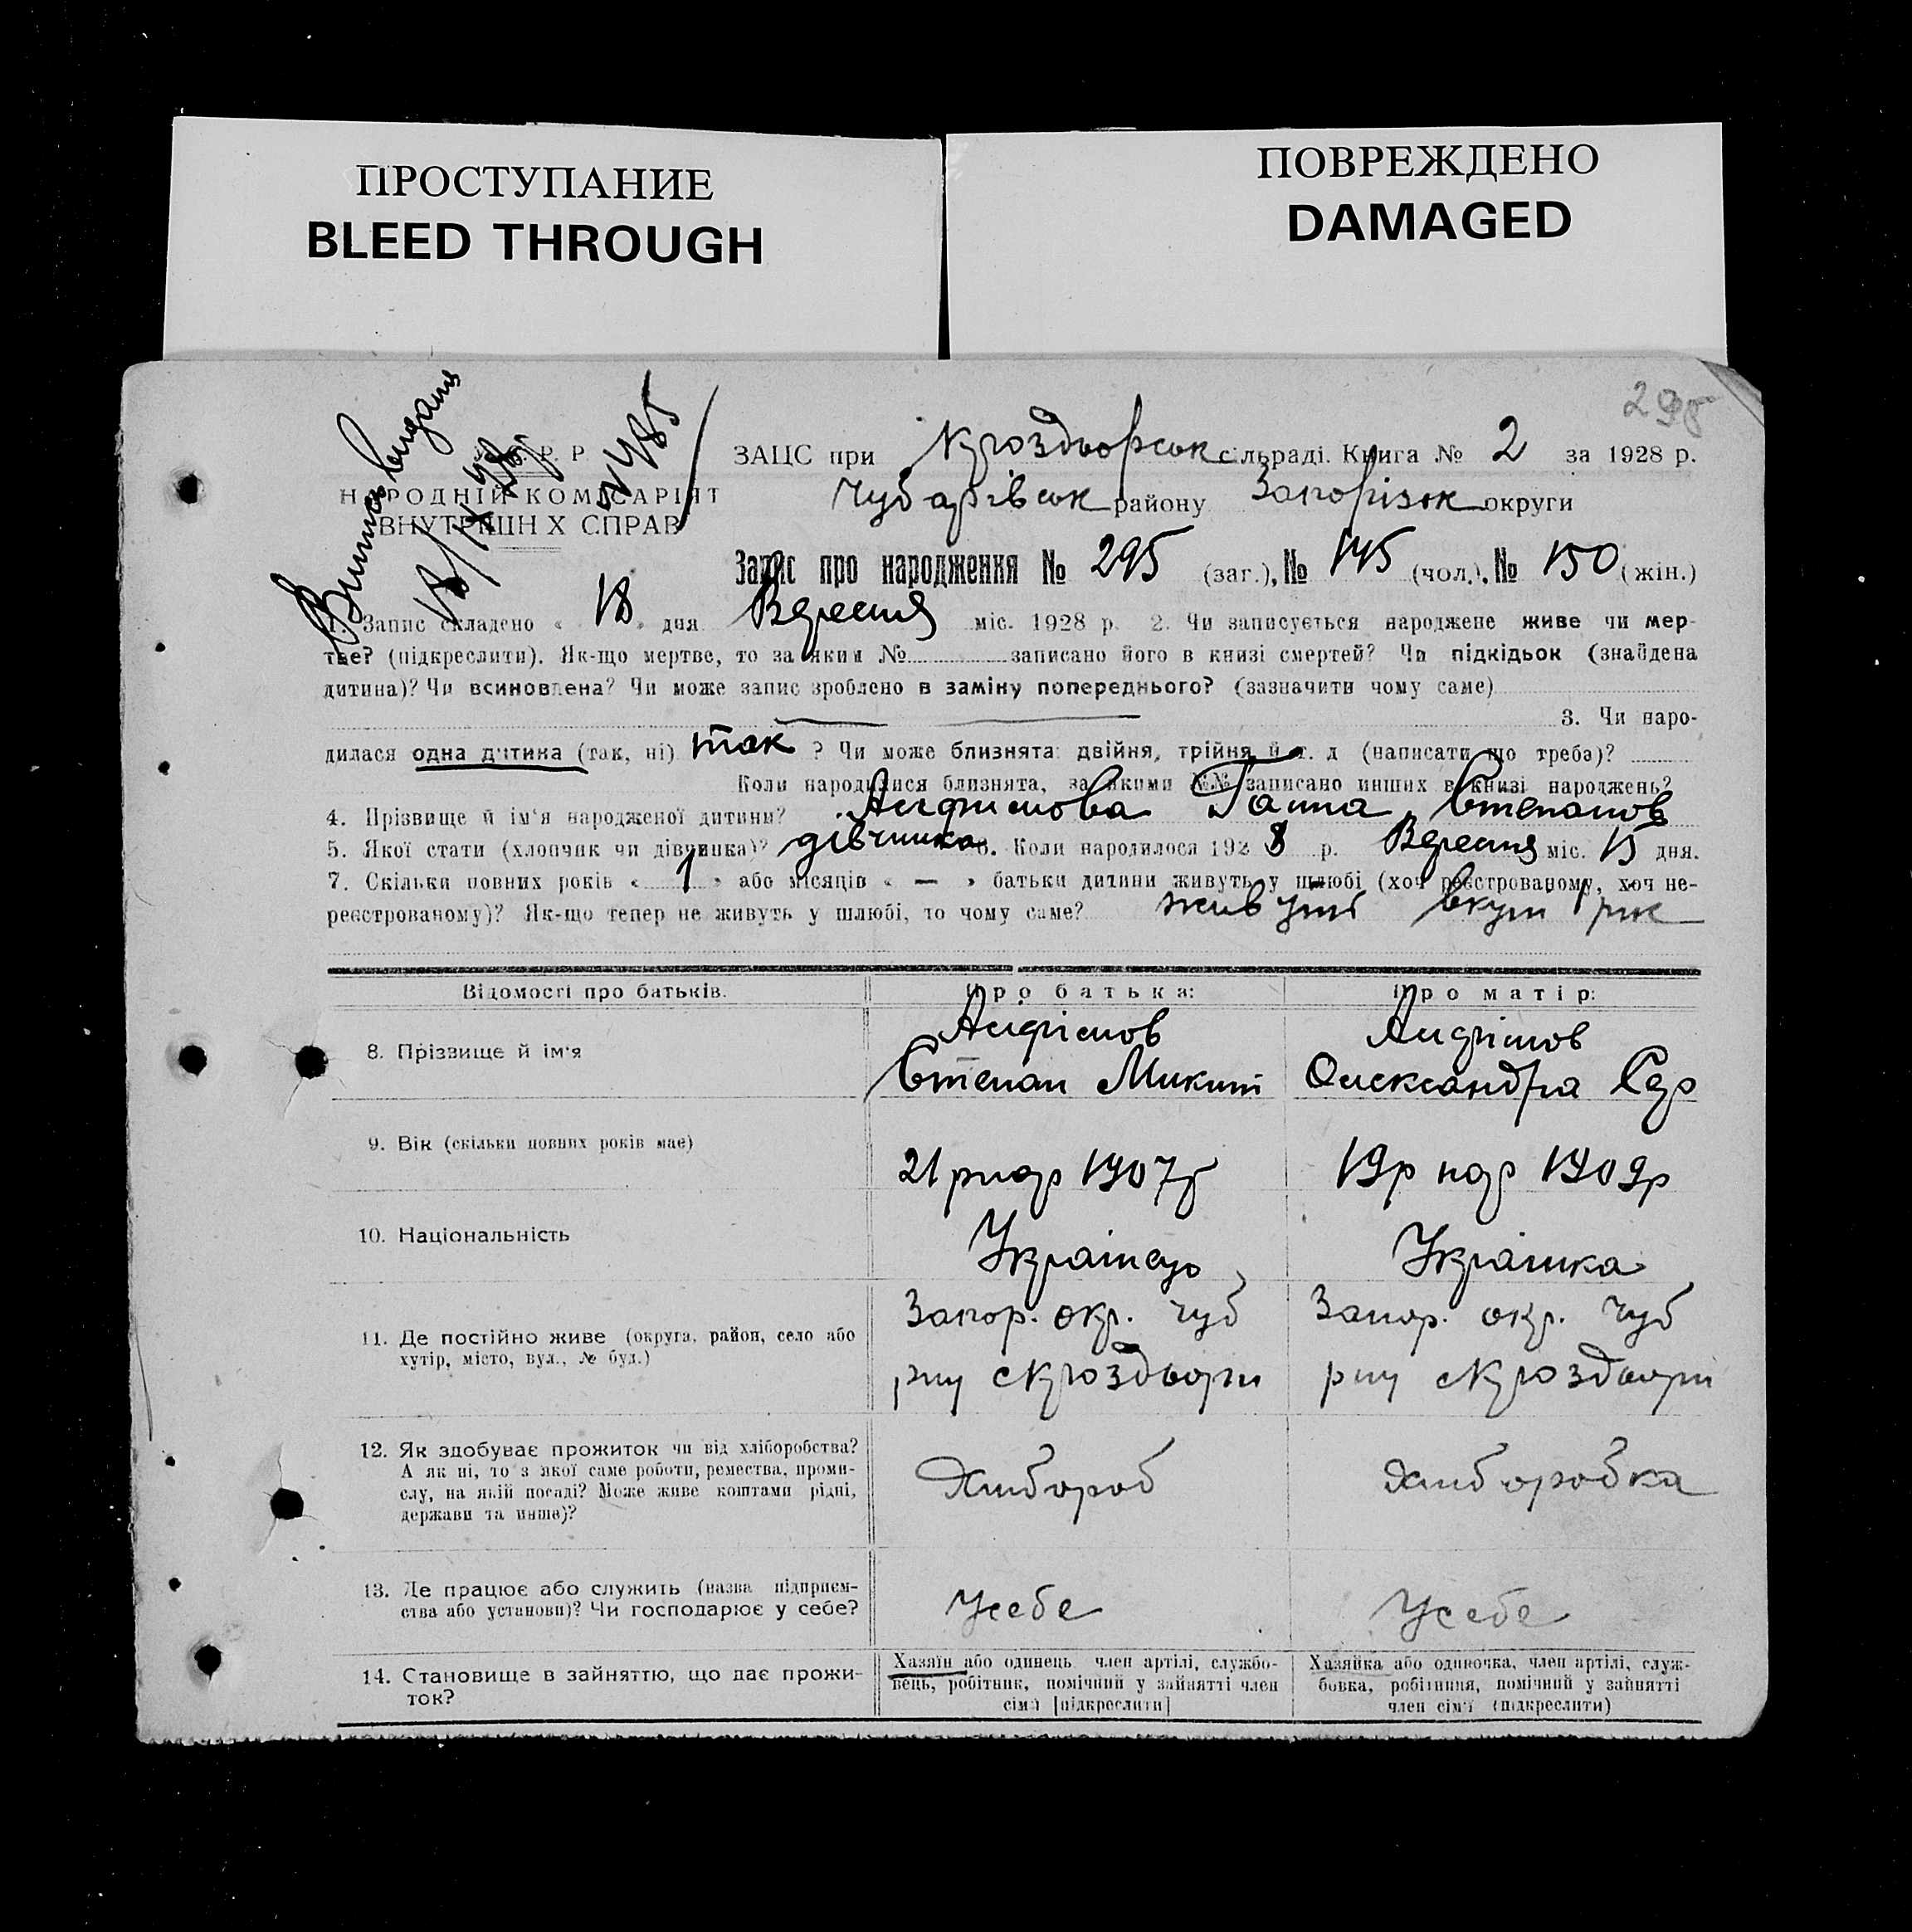 ПРОСТУПАНИЕ
BLEED THROUGH
ПОВРЕЖДЕНО
DAMAGED
298
Витяг видано
18/IX 28
№ 485
У.С.Р.Р.
НАРОДНІЙ КОМІСАРІЯТ
ВНУТРІШНІХ СПРАВ
ЗАЦС при Кгоздворськ сільраді. Книга № 2 за 1928 р.
Чубарівськ району Запорізьк округи
Запис про народження № 295 (заг.), № 145 (чол.), № 150 (жін.)
1. Запис складено « 18 » дня Вересня міс. 1928 р. 2. Чи записується народжене живе чи мер-
тве? (підкреслити). Як-що мертве, то за яким № записано його в книзі смертей? Чи підкідьок (знайдена
дитина)? Чи всиновлена? Чи може запис зроблено в заміну попереднього? (зазначити чому саме)
3. Чи наро-
дилася одна дитина (так, ні) так ? Чи може близнята: двійня, трійня й т. д (написати що треба)?
Коли народилися близнята, за якими №№ записано инших в книзі народжень?
4. Прізвище й ім'я народженої дитини? Анфимова Ганна Степанов
5. Якої стати (хлопчик чи дівчинка)? дівчинка 6. Коли народилося 1928 р. Вересня міс. 15 дня.
7. Скільки повних років « 1 » або місяців « — » батьки дитини живуть у шлюбі (хоч реєстрованому, хоч не-
реєстрованому)? Як-що тепер не живуть у шлюбі, то чому саме? живуть вкуп 1 рик
Відомості про батьків.
Про батька:
Про матір:
8. Прізвище й ім'я
Анфімов
Степан Микит
Анфімов
Олександра Єдо
9. Вік (скільки повних років має)
21 р нар 1907 р
19 р нар 1909 р
10. Національність
Українець
Українка
11. Де постійно живе (округа, район, село або
хутір, місто, вул., № буд.)
Запор. окр. Чуб
рну
Запор. окр. Чуб
рну
12. Як здобуває прожиток чи від хліборобства?
А як ні, то з якої саме роботи, ремества, проми-
слу, на якій посаді? Може живе коштами рідні,
держави та инше)?
Хлибороб
Хлиборобка
13. Де працює або служить (назва підприєм-
ства або установи)? Чи господарює у себе?
Усебе
Усебе
14. Становище в зайняттю, що дає прожи-
ток?
Хазяїн або одинець член артілі, службо-
вець, робітник, помічний у зайнятті член
сім'ї [підкреслити]
Хазяйка або одиночка, член артілі, служ-
бовка, робітниця, помічний у зайнятті
член сім'ї (підкреслити)